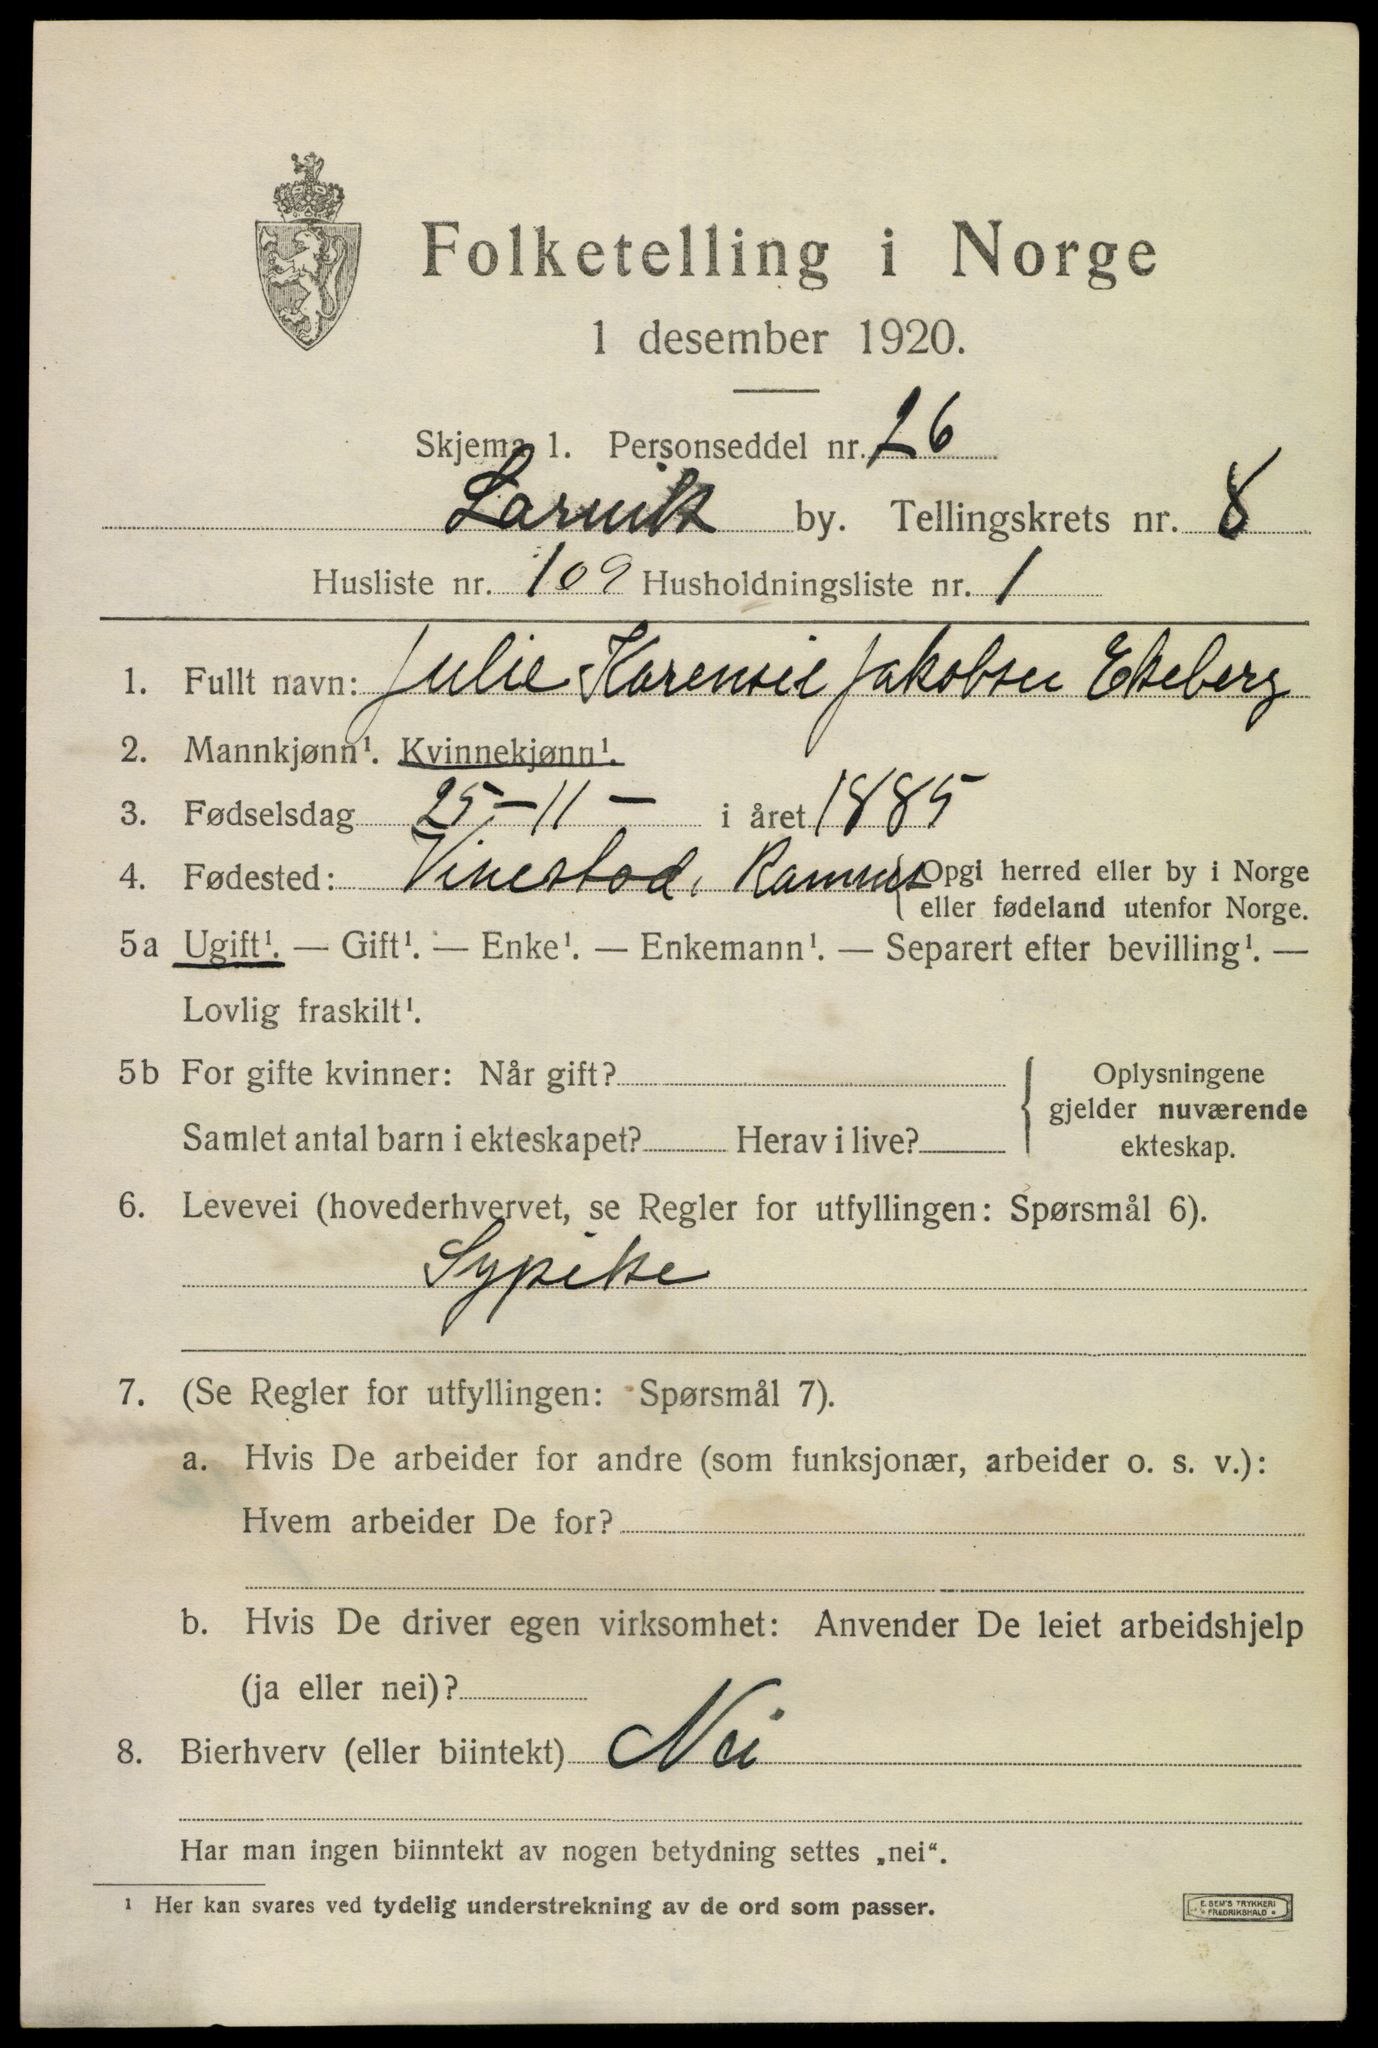 Folketelling i Norge
1 desember 1920.
Skjema 1. Personseddel nr. 26
Larvik by. Tellingskrets nr. 8
Husliste nr. 109 Husholdningsliste nr. 1
1. Fullt navn: Julie Karensie Jakobsen Ekeberg
2. Mannkjønn¹. Kvinnekjønn¹.
3. Fødselsdag 25-11- i året 1885
4. Fødested: Vinestad, Ramnes Opgi herred eller by i Norge
eller fødeland utenfor Norge.
5a Ugift¹. — Gift¹. — Enke¹. — Enkemann¹. — Separert efter bevilling¹. —
Lovlig fraskilt¹.
5b For gifte kvinner: Når gift?
Samlet antal barn i ekteskapet? Herav i live?
Oplysningene
gjelder nuværende
ekteskap.
6. Levevei (hovederhvervet, se Regler for utfyllingen: Spørsmål 6).
Sypike
7. (Se Regler for utfyllingen: Spørsmål 7).
a. Hvis De arbeider for andre (som funksjonær, arbeider o. s. v.):
Hvem arbeider De for?
b. Hvis De driver egen virksomhet: Anvender De leiet arbeidshjelp
(ja eller nei)?
8. Bierhverv (eller biintekt) Nei
Har man ingen biinntekt av nogen betydning settes „nei“.
¹ Her kan svares ved tydelig understrekning av de ord som passer.
E. SEM'S TRYKKERI
FREDRIKSHALD